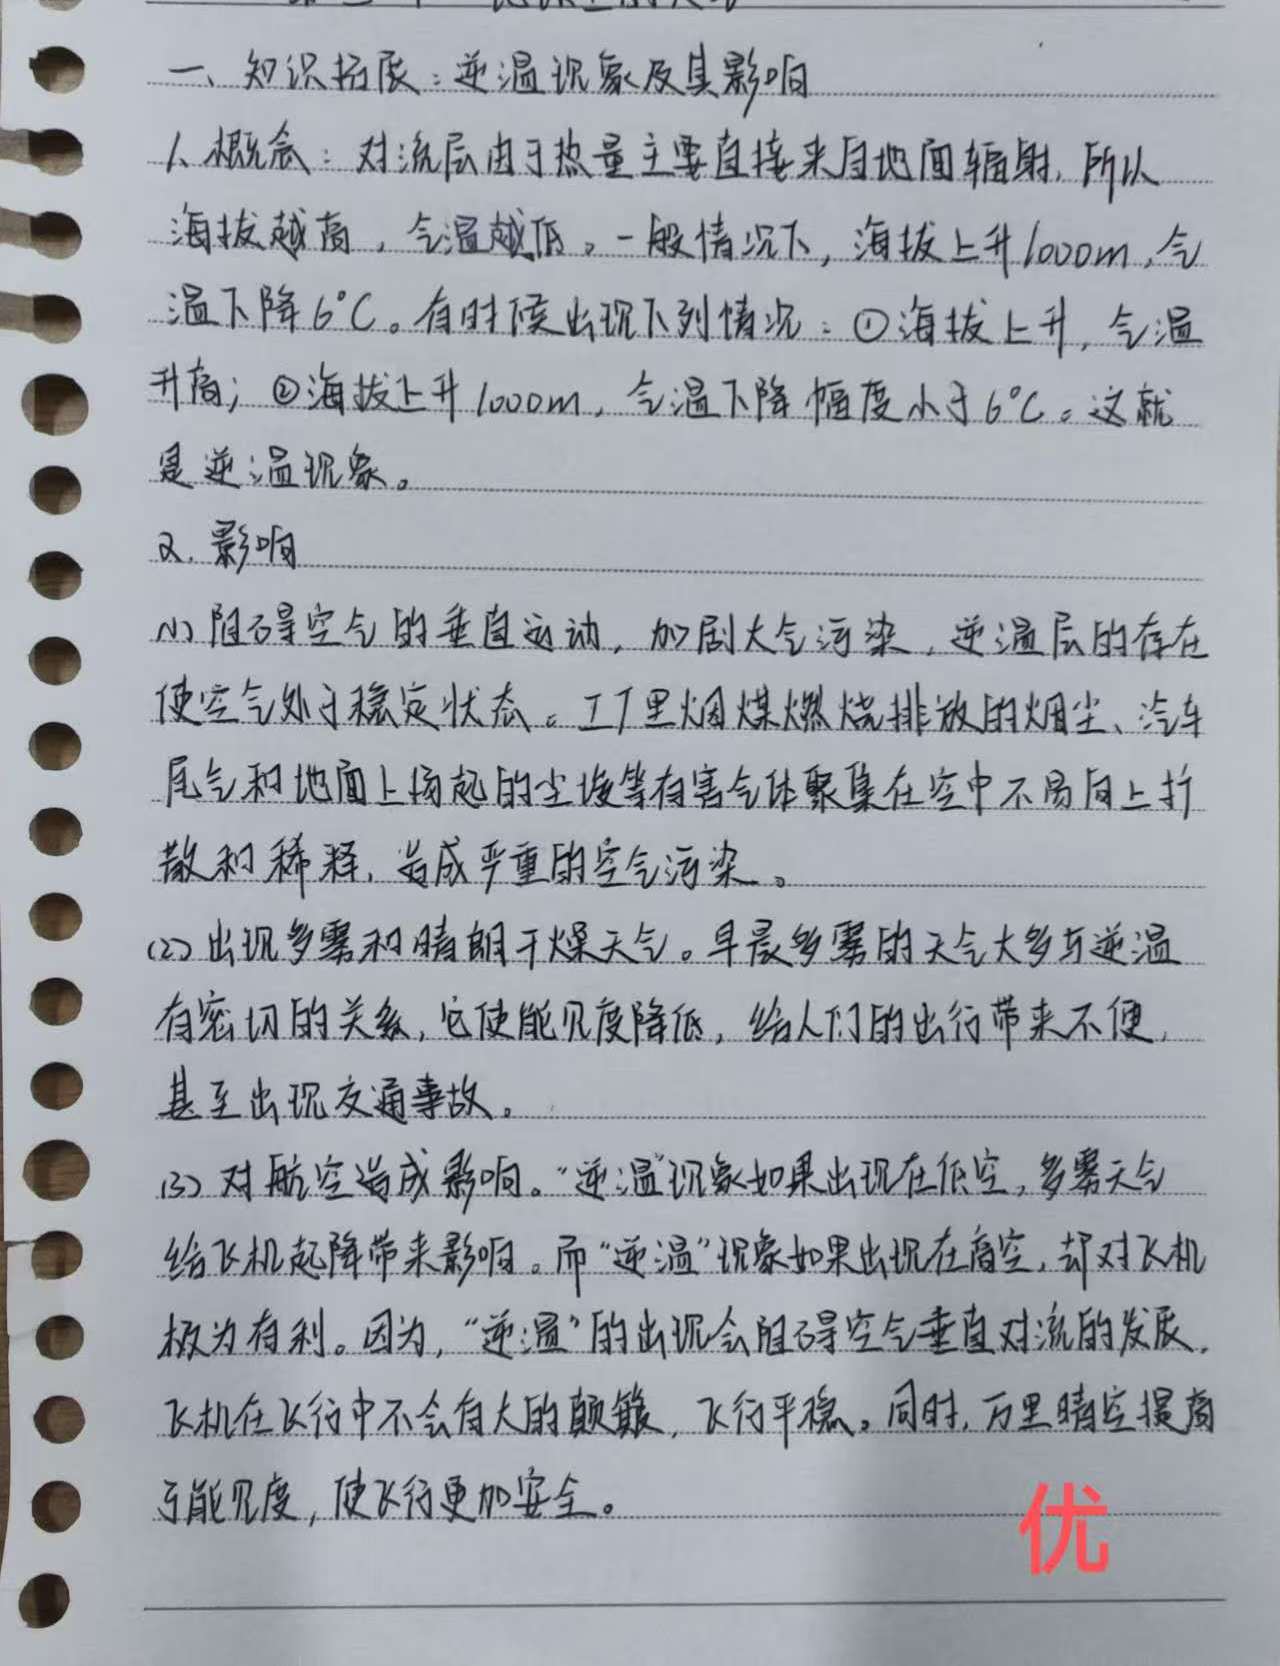 一、知识拓展：逆温现象及其影响
1、概念：对流层由于热量主要直接来自地面辐射，所以
海拔越高，气温越低。一般情况下，海拔上升1000m，气
温下降6°C。有时候出现下列情况：①海拔上升，气温
升高；②海拔上升1000m，气温下降幅度小于6°C。这就
是逆温现象。
2.影响
(1)阻碍空气的垂直运动，加剧大气污染，逆温层的存在
使空气处于稳定状态。工厂里烟煤燃烧排放的烟尘、汽车
尾气和地面上扬起的尘埃等有害气体聚集在空中不易向上扩
散和稀释，造成严重的空气污染。
(2)出现多雾和晴朗干燥天气。早晨多雾的天气大多与逆温
有密切的关系，它使能见度降低，给人们的出行带来不便，
甚至出现交通事故。
(3)对航空造成影响。“逆温”现象如果出现在低空，多雾天气
给飞机起降带来影响。而“逆温”现象如果出现在高空，却对飞机
极为有利。因为，“逆温”的出现会阻碍空气垂直对流的发展，
飞机在飞行中不会有大的颠簸，飞行平稳。同时，万里晴空提高
了能见度，使飞行更加安全。
优